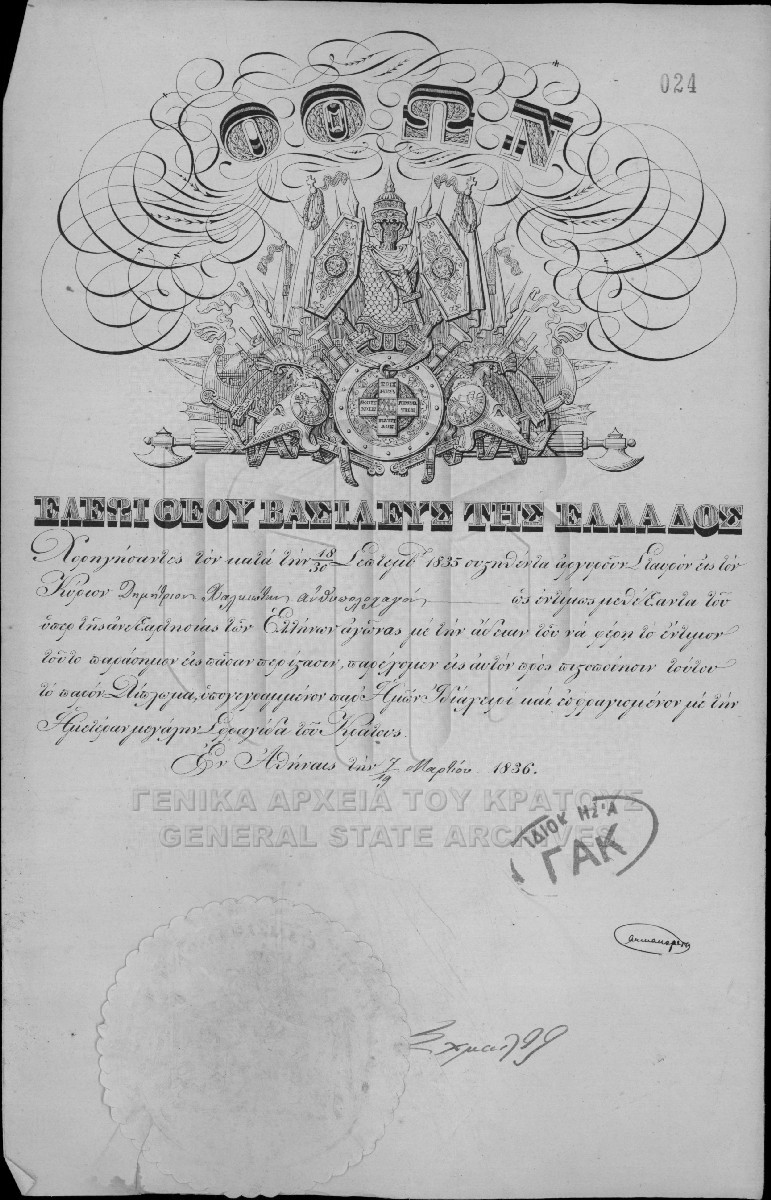 024
ΟΘΩΝ
ΕΛΕΩΙ ΘΕΟΥ ΒΑΣΙΛΕΥΣ ΤΗΣ ΕΛΛΑΔΟΣ
Χορηγήσαντες τὸν κατὰ τὴν 18/30 Σεπτεμβ. 1835 συςηθέντα ἀργυροῦν Σταυρὸν εἰς τὸν
Κύριον Δημήτριον Χαλκιώτην ἀνθυπολοχαγόν ὡς ἐντίμως μεθέξαντα τοῦ
ὑπὲρ τῆς ἀνεξαρτησίας τῶν Ἑλλήνων ἀγῶνος μὲ τὴν ἄδειαν τοῦ νὰ φέρῃ τὸ ἔντιμον
τοῦτο παράσημον εἰς πᾶσαν περίςασιν, παρέχομεν εἰς αὐτὸν πρὸς πιςοποίησιν τούτου
τὸ παρὸν Δίπλωμα, ὑπογεγραμμένον παρ' Ἡμῶν Ἰδιοχείρως καὶ ἐσφραγισμένον μὲ τὴν
Ἡμετέραν μεγάλην Σφραγῖδα τοῦ Κράτους.
Ἐν Ἀθήναις τὴν 7/19 Μαρτίου 1836.
ΓΕΝΙΚΑ ΑΡΧΕΙΑ ΤΟΥ ΚΡΑΤΟΥΣ
GENERAL STATE ARCHIVES
ΙΔΙΟΚΗΣΙΑ
ΓΑΚ